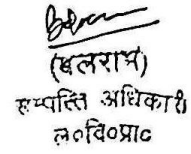 (बलराम)
सम्पत्ति अधिकारी
ल०वि०प्रा०